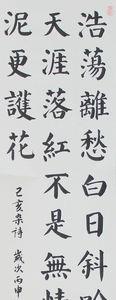 浩蕩離愁白日斜吟
天涯落紅不是無情
泥更護花
己亥雜詩 歲次丙申